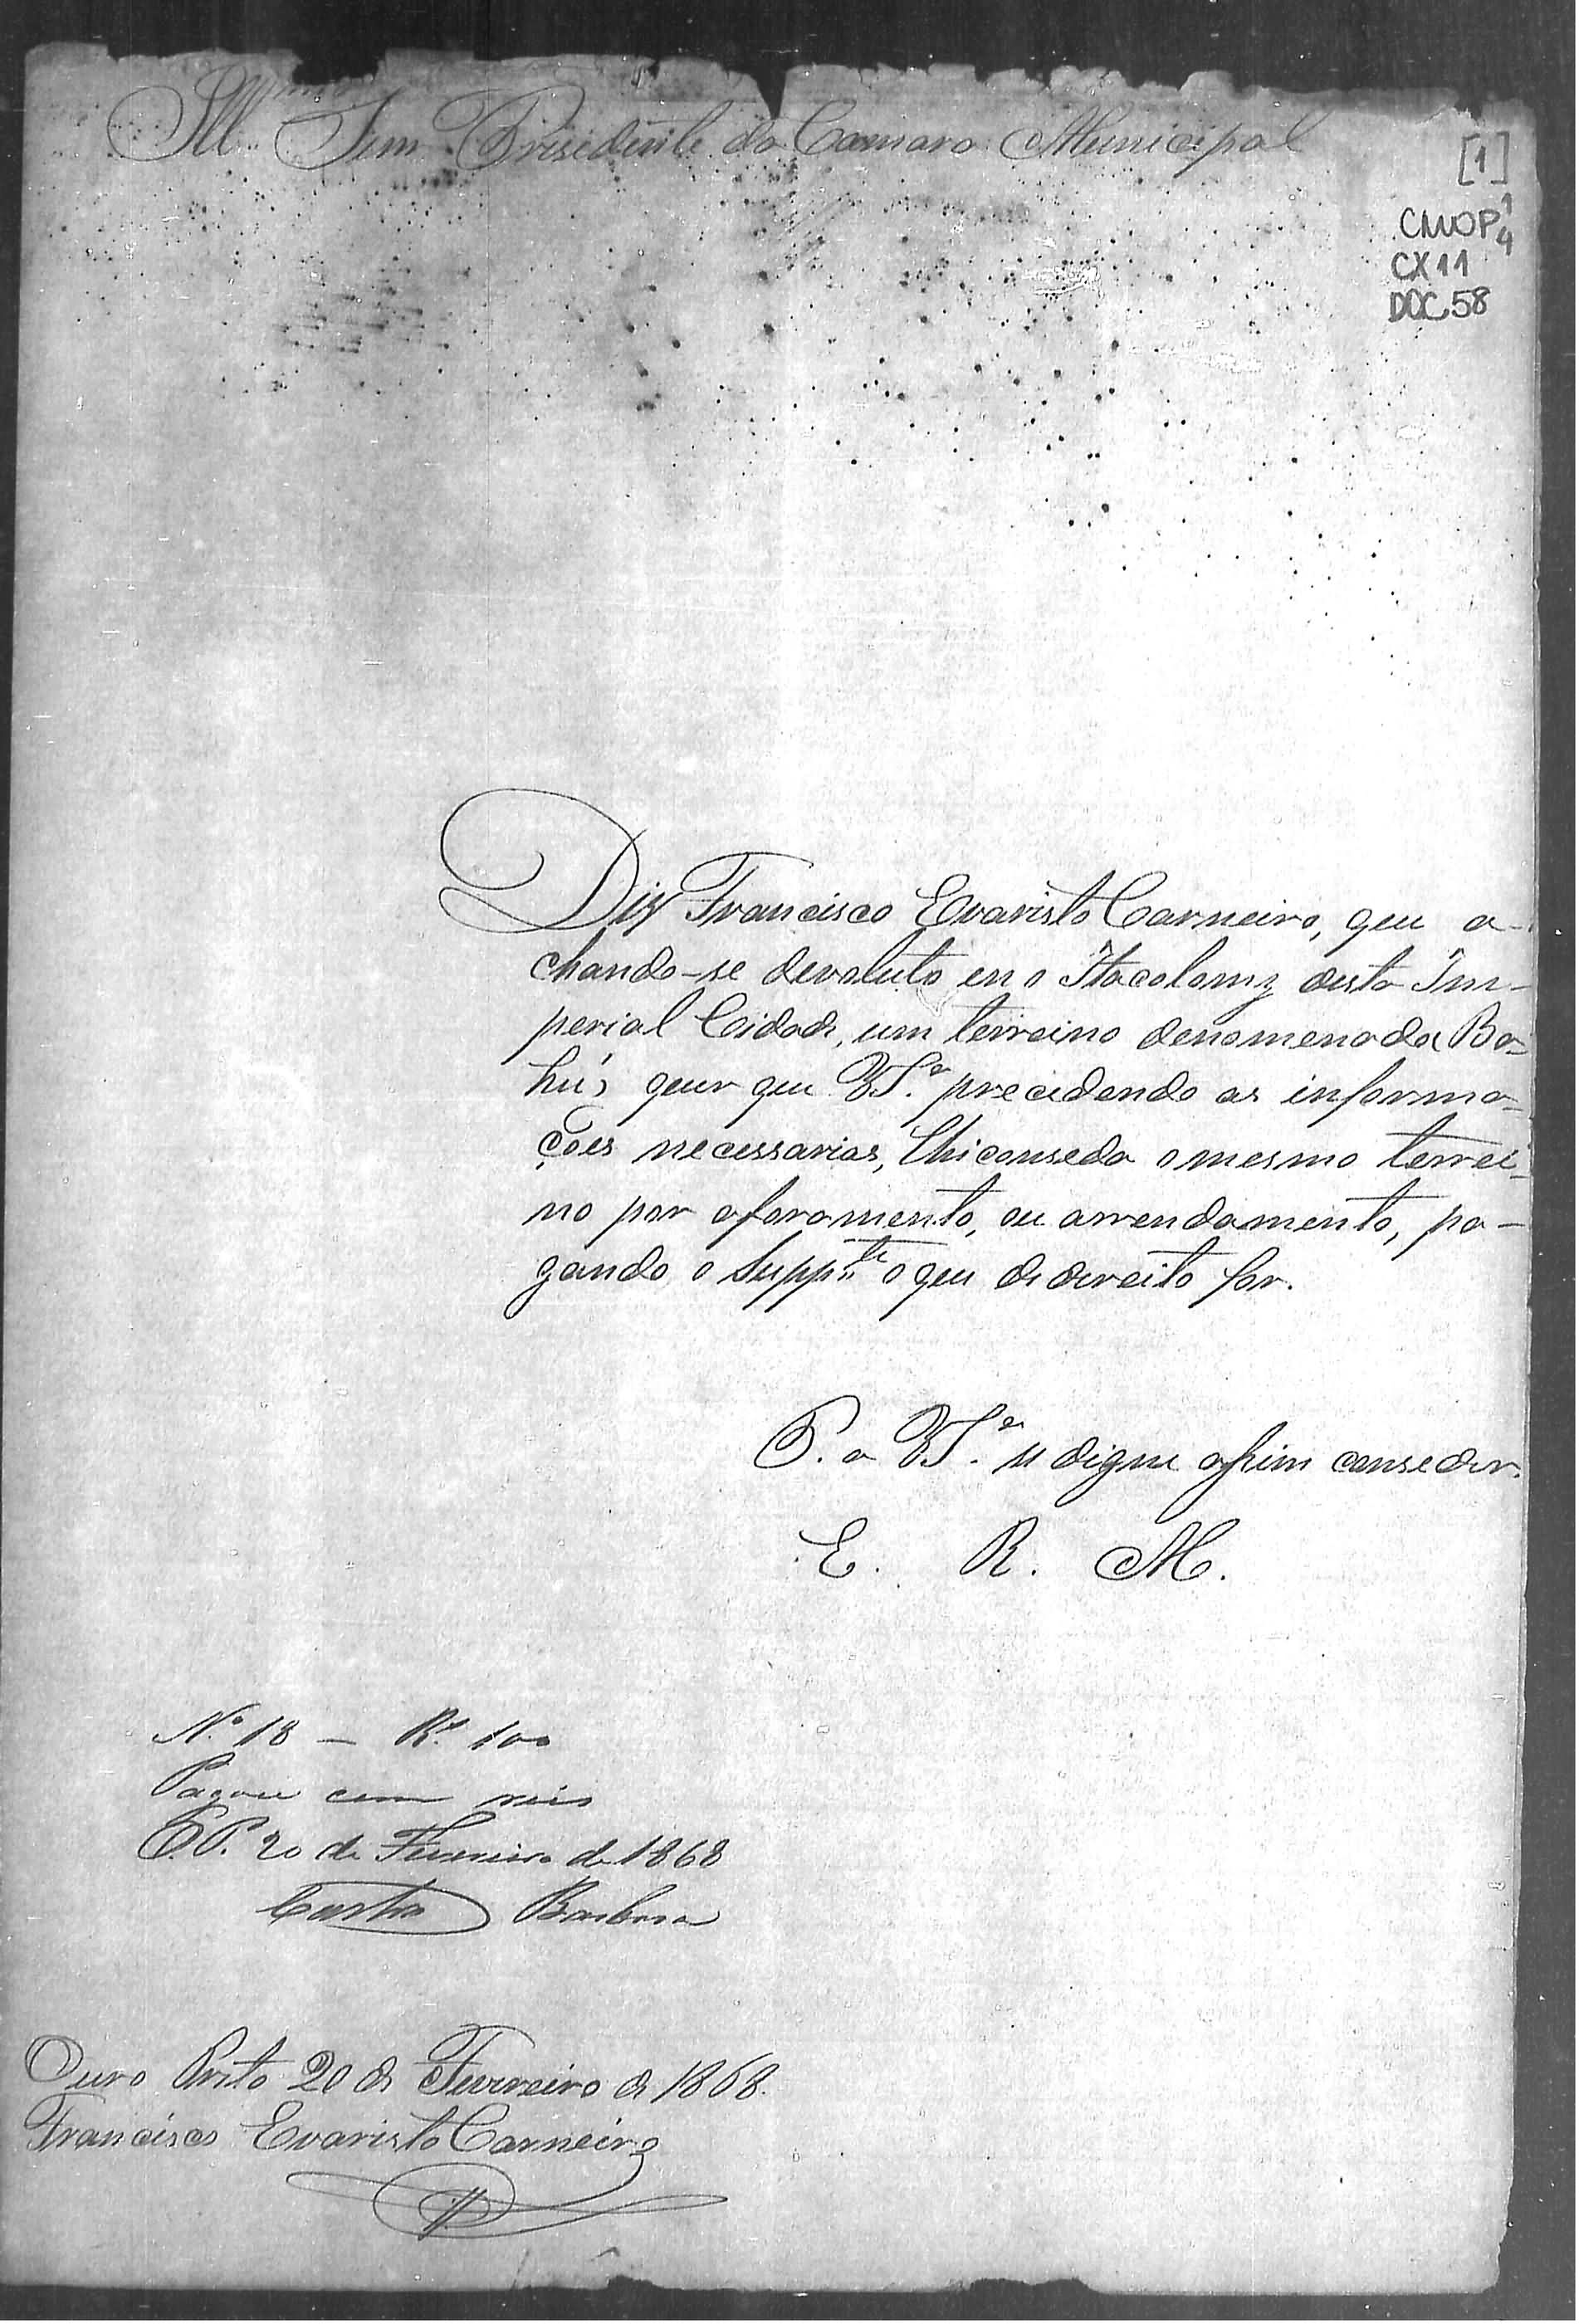 Ill.mo Snr. Presidente da Camara Municipal
[1]
CMOP 1/4
CX 11
DOC 58
Diz Francisco Evaristo Carneiro, que a-
chando-se devoluto em o Itacolomy desta Im-
perial Cidade, um terreino denomenado Ba-
hú, quer que V.S.ª precedendo as informa-
ções necessarias, lhi conseda o mesmo terrei-
no por aforamento, ou arrendamento, pa-
gando o Supp.te o que de direito for.
P. a V.S.ª se digne assim conseder.
E. R. M.
N.º 18 — R.s 100
Pagou cem reis
O.P. 20 de Fevereiro de 1868
Barbosa
Ouro Preto 20 de Fevereiro de 1868.
Francisco Evaristo Carneiro